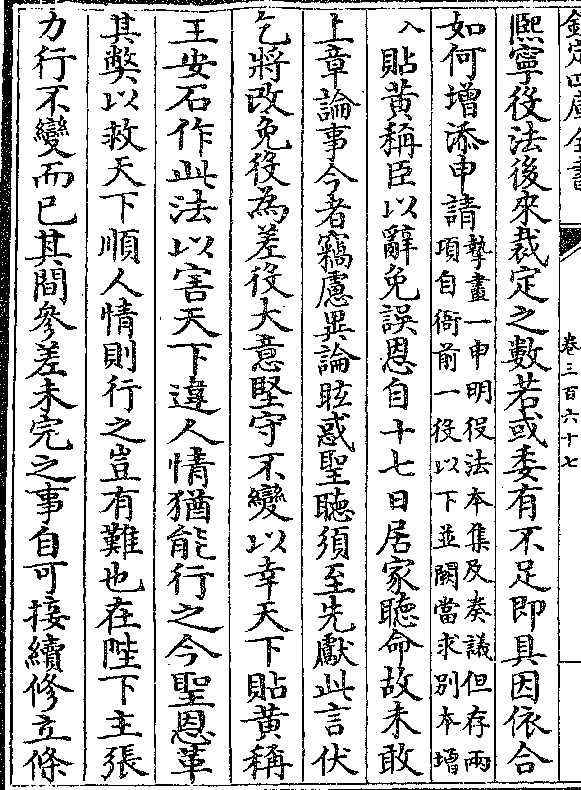 欽定四庫全書
卷三百六十七
熙寧役法後來裁定之數若或委有不足即具因依合
如何增添申請摯畫一申明役法本集及奏議但存兩
項自衙前一役以下並闕當求別本增
入貼黄稱臣以辭免誤恩自十七日居家聽命故未敢
上章論事今者竊慮異論眩惑聖聽須至先獻此言伏
乞將改免役為差役大意堅守不變以幸天下貼黄稱
王安石作此法以害天下違人情猶能行之今聖恩革
其弊以救天下順人情則行之豈有難也在陛下主張
力行不變而已其間參差未完之事自可接續修立條